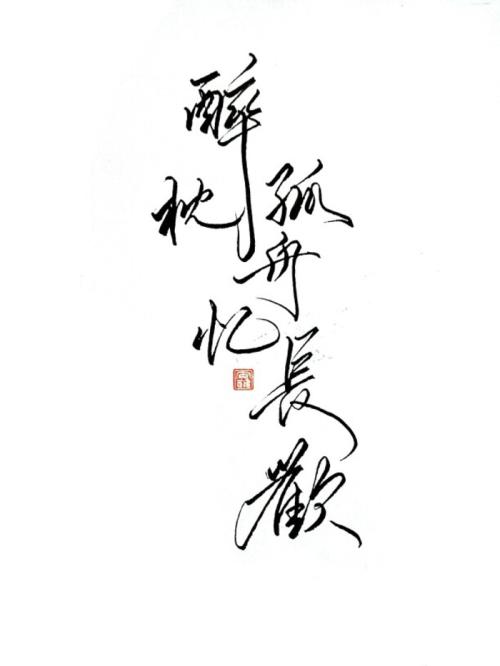 醉枕
孤舟
忆
长歡